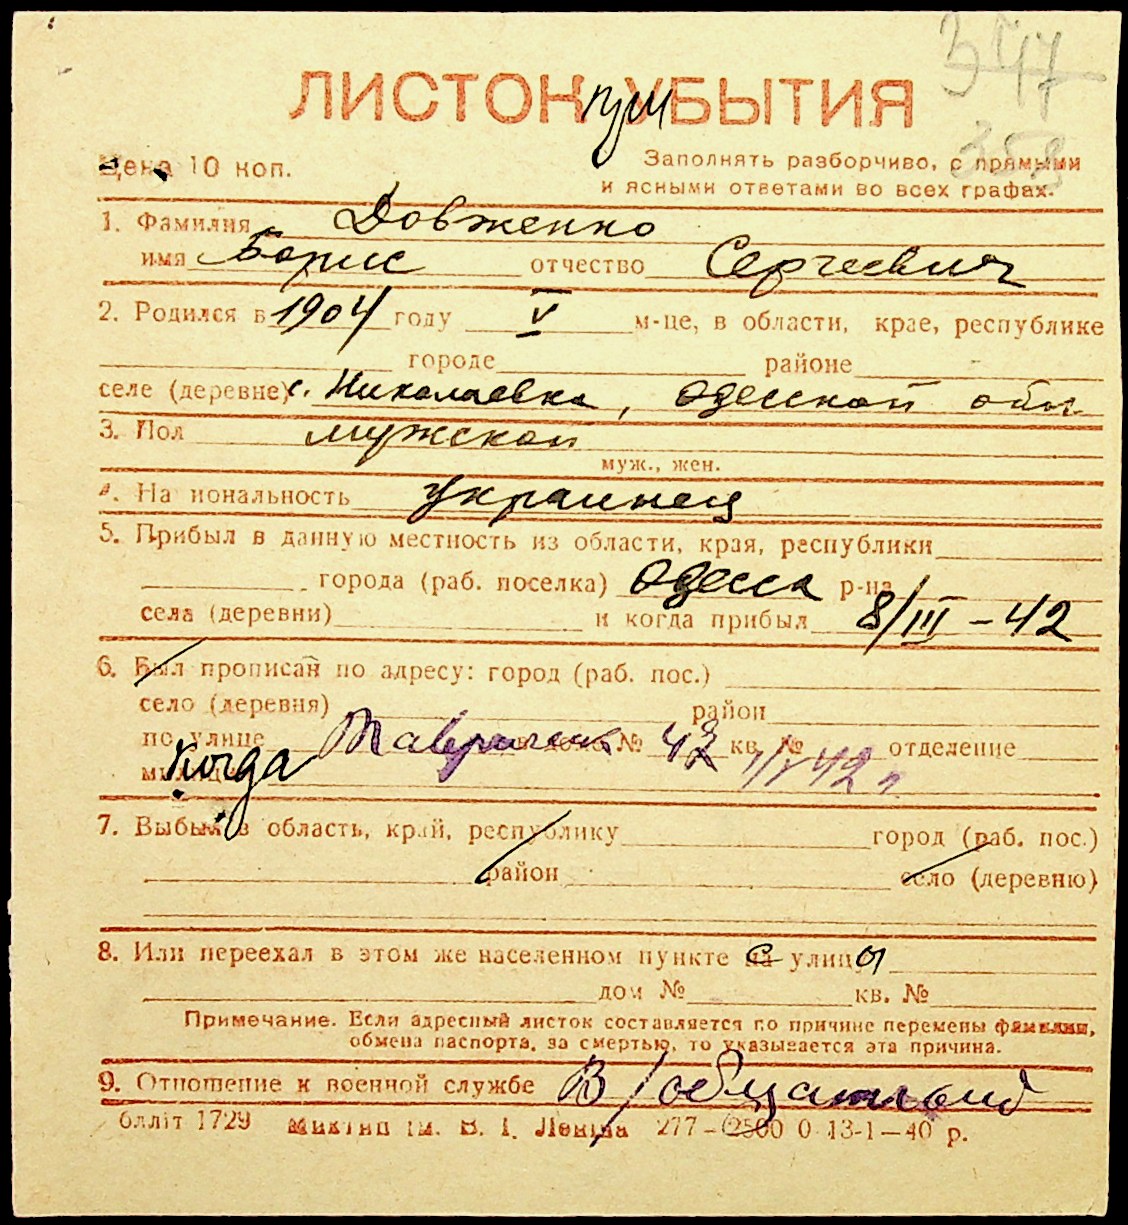 3547
358
ЛИСТОК при УБЫТИЯ
Цена 10 коп.
Заполнять разборчиво, с прямыми
и ясными ответами во всех графах.
1. Фамилия Довженко
имя Борис отчество Сергеевич
2. Родился в 1904 году V м-це, в области, крае, республике
городе районе
селе (деревне) с. Николаевка, Одесской обл
3. Пол мужской
муж., жен.
4. Национальность украинец
5. Прибыл в данную местность из области, края, республики
города (раб. поселка) Одесса р-на
села (деревни) и когда прибыл 8/III-42
6. Был прописан по адресу: город (раб. пос.)
село (деревня) район
по улице дом № 42 кв. № отделение
милиции Когда 42 г
7. Выбыл в область, край, республику город (раб. пос.)
район село (деревню)
8. Или переехал в этом же населенном пункте на с улицы
дом № кв. №
Примечание. Если адресный листок составляется по причине перемены фамилии,
обмена паспорта, за смертью, то указывается эта причина.
9. Отношение к военной службе В/обязанный
блліт 1729 ім. В. І. Леніна 277—2500 0 13-1—40 р.